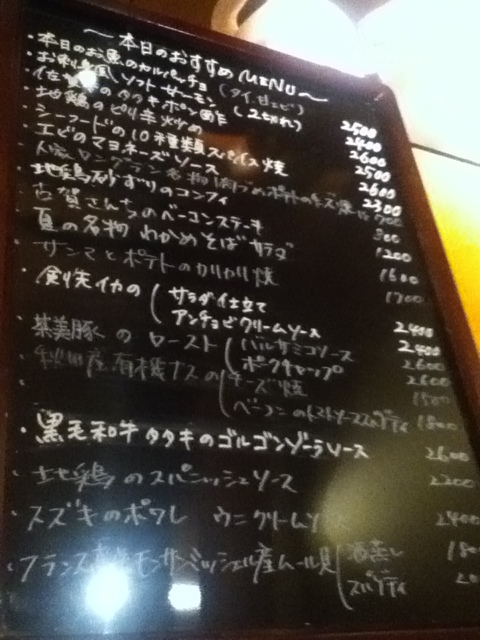 ～本日のおすすめMENU～
・本日のお魚のカルパッチョ(タイ、甘エビ) 2500
・お刺身風ソフトサーモン(2切れ) 2400
のタタキポン酢 2600
・地鶏のピリ辛炒め 2500
・シーフードの10種類スパイス焼 2600
・エビのマヨネーズソース 2300
・地鶏砂ずりのコンフィ 800
・古賀さんちのベーコンステーキ 1200
・夏の名物 わかめそばサラダ 1600
・サンマとポテトのカリカリ焼 1700
・剣先イカの(サラダ仕立て 2400
アンチョビクリームソース 2400
・茶美豚のロースト(バルサミコソース 2600
ポークチャップ 2600
・秋田産有機ナスの(チーズ焼
ベーコンのトマトソーススパゲティ 1800
・黒毛和牛タタキのゴルゴンゾーラソース 2600
・地鶏のスパニッシュソース 2200
・スズキのポワレ ウニクリームソース 2400
・フランス産モンサンミッシェル産ムール貝(酒蒸し